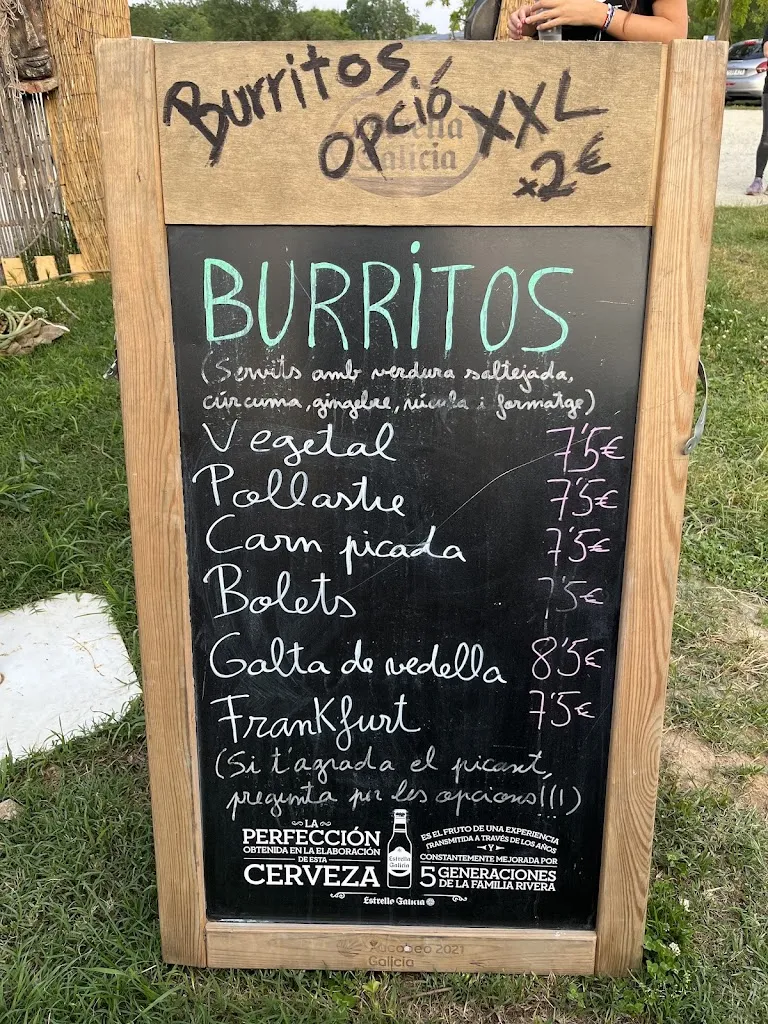 Burritos
opció XXL
+2€
Estrella
Galicia
BURRITOS
(Servits amb verdura saltejada,
cúrcuma, gingebre, rúcula i formatge)
Vegetal 7'5€
Pollastre 7'5€
Carn picada 7'5€
Bolets 7'5€
Galta de vedella 8'5€
Frankfurt 7'5€
(Si t'agrada el picant,
pregunta per les opcions!!!)
LA
PERFECCIÓN
OBTENIDA EN LA ELABORACIÓN
DE ESTA
CERVEZA
Estrella
Galicia
ES EL FRUTO DE UNA EXPERIENCIA
TRANSMITIDA A TRAVÉS DE LOS AÑOS
Y
CONSTANTEMENTE MEJORADA POR
5 GENERACIONES
DE LA FAMILIA RIVERA
Estrella Galicia
2021
Galicia